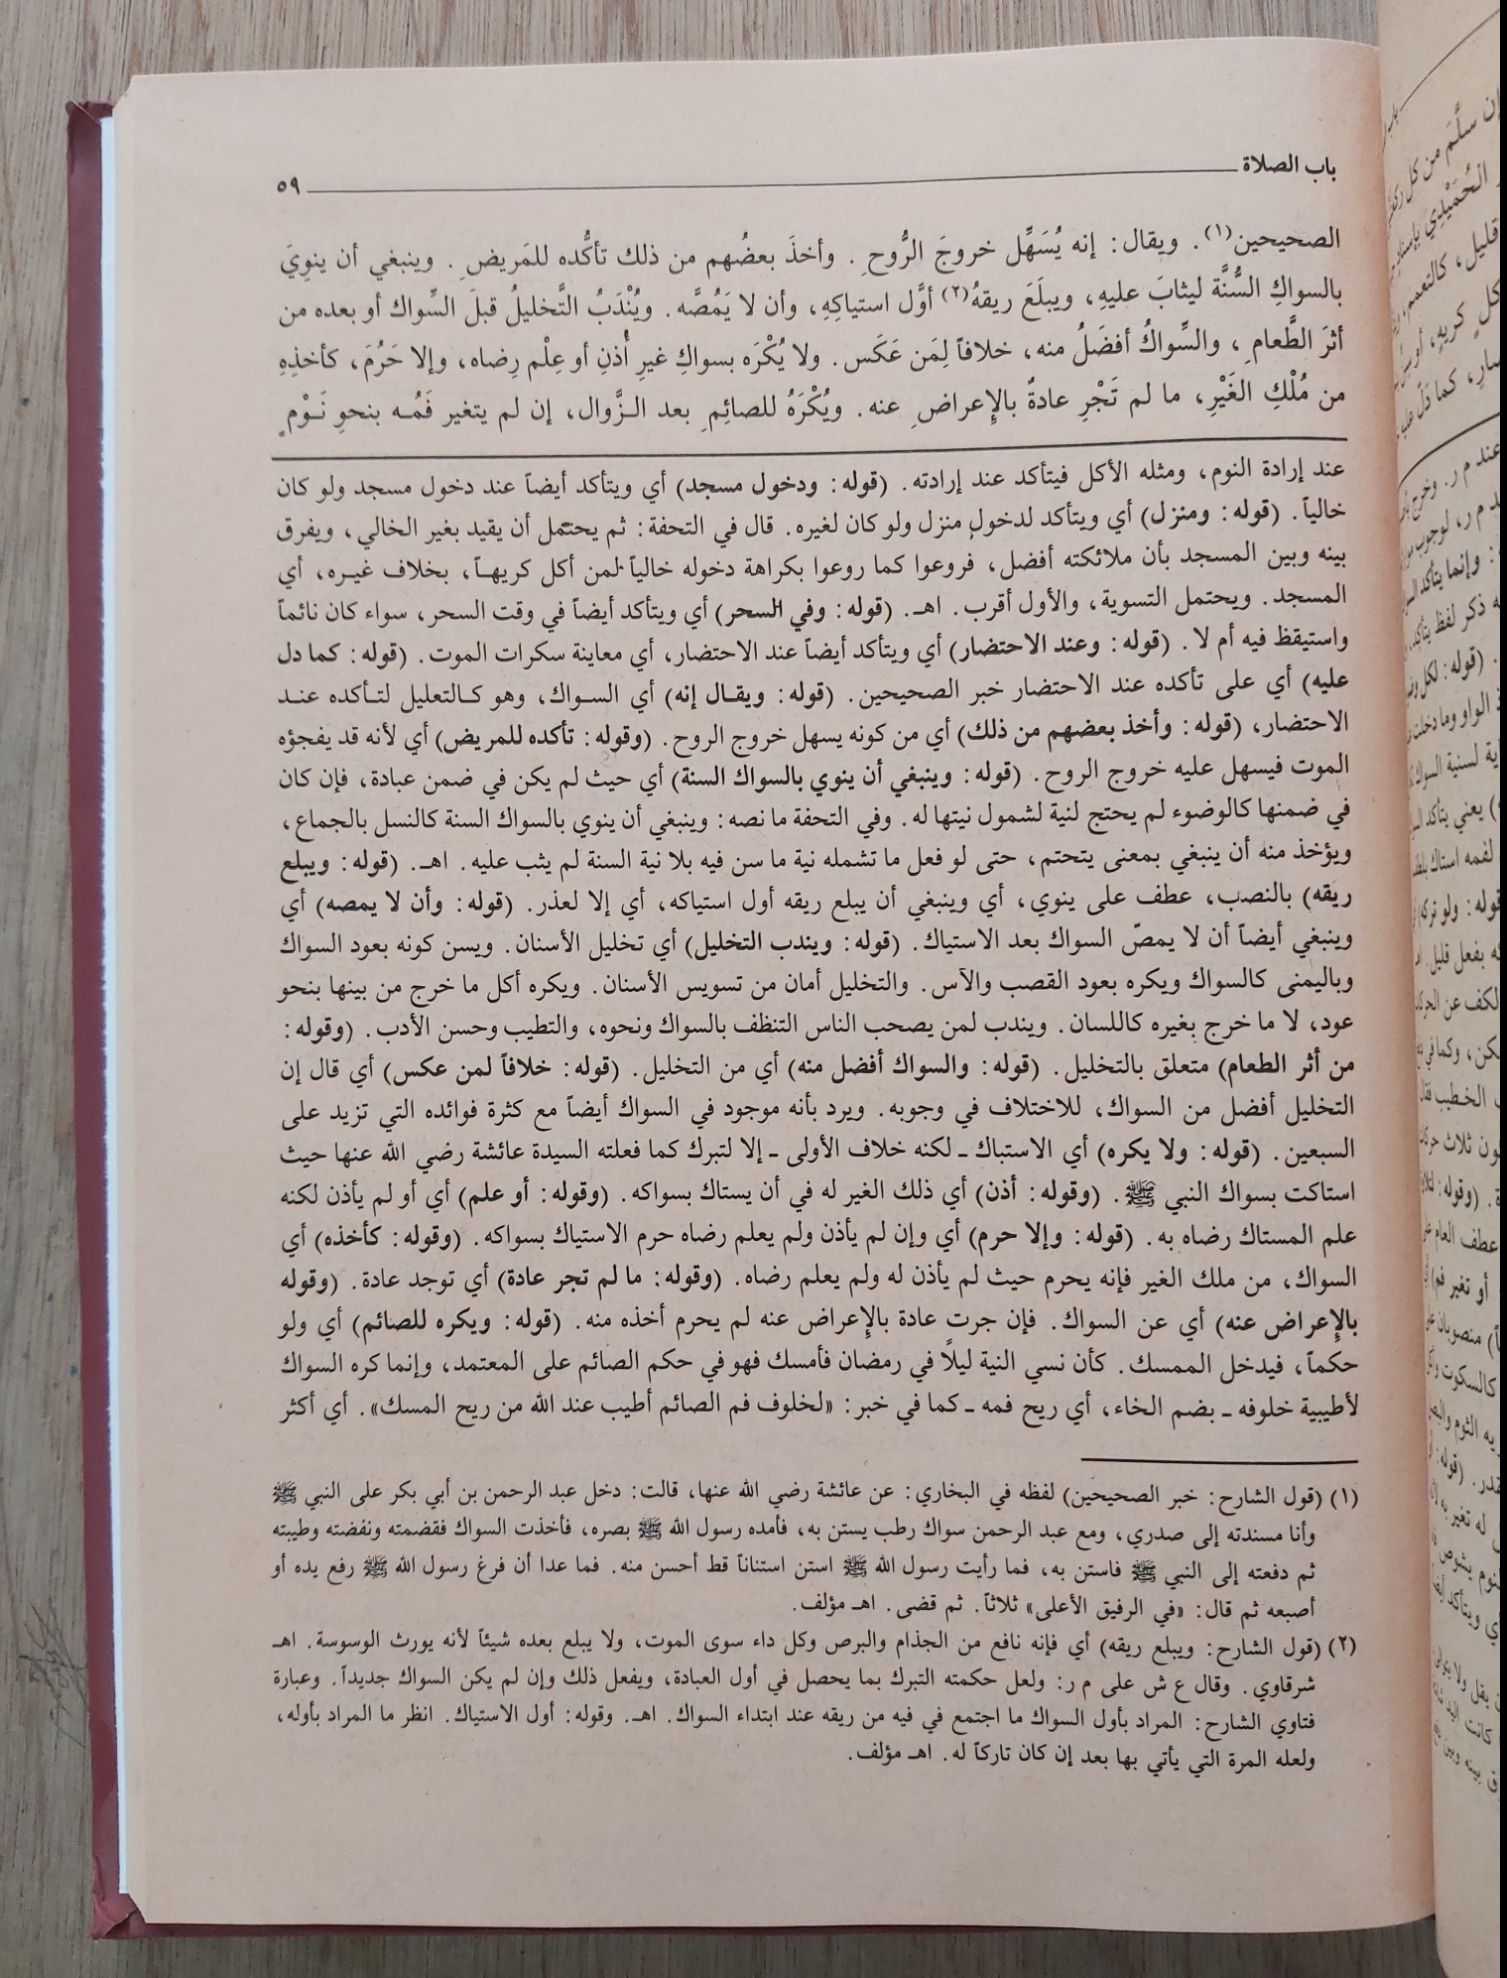 باب الصلاة ٥٩
الصحيحين(١). ويقال: إنه يُسَهِّل خروجَ الرُّوحِ. وأخذَ بعضُهم من ذلك تأكُّده للمَريضِ. وينبغي أن ينوِيَ
بالسواكِ السُّنَّة ليثابَ عليهِ، ويبلَعَ ريقهُ(٢) أوَّل استياكِهِ، وأن لا يَمُصَّه. ويُنْدَبُ التَّخليلُ قبلَ السِّواك أو بعده من
أثرَ الطَّعامِ، والسِّواكُ أفضَلُ منه، خلافاً لِمَن عَكَس. ولا يُكْرَه بسواكِ غيرِ أُذنِ أو عِلْم رِضاه، وإلا حَرُمَ، كأخذِهِ
من مُلْكِ الغَيْرِ، ما لم تَجْرِ عادةٌ بالإعراضِ عنه. ويُكْرَهُ للصائِمِ بعد الزَّوال، إن لم يتغير فَمُه بنحوِ نَوْمٍ
عند إرادة النوم، ومثله الأكل فيتأكد عند إرادته. (قوله: ودخول مسجد) أي ويتأكد أيضاً عند دخول مسجد ولو كان
خالياً. (قوله: ومنزل) أي ويتأكد لدخول منزل ولو كان لغيره. قال في التحفة: ثم يحتمل أن يقيد بغير الخالي، ويفرق
بينه وبين المسجد بأن ملائكته أفضل، فروعوا كما روعوا بكراهة دخوله خالياً لمن أكل كريهاً، بخلاف غيره، أي
المسجد. ويحتمل التسوية، والأول أقرب. اهـ. (قوله: وفي السحر) أي ويتأكد أيضاً في وقت السحر، سواء كان نائماً
واستيقظ فيه أم لا. (قوله: وعند الاحتضار) أي ويتأكد أيضاً عند الاحتضار، أي معاينة سكرات الموت. (قوله: كما دل
عليه) أي على تأكده عند الاحتضار خبر الصحيحين. (قوله: ويقال إنه) أي السواك، وهو كالتعليل لتأكده عند
الاحتضار، (قوله: وأخذ بعضهم من ذلك) أي من كونه يسهل خروج الروح. (وقوله: تأكده للمريض) أي لأنه قد يفجؤه
الموت فيسهل عليه خروج الروح. (قوله: وينبغي أن ينوي بالسواك السنة) أي حيث لم يكن في ضمن عبادة، فإن كان
في ضمنها كالوضوء لم يحتج لنية لشمول نيتها له. وفي التحفة ما نصه: وينبغي أن ينوي بالسواك السنة كالنسل بالجماع،
ويؤخذ منه أن ينبغي بمعنى يتحتم، حتى لو فعل ما تشمله نية ما سن فيه بلا نية السنة لم يثب عليه. اهـ. (قوله: ويبلع
ريقه) بالنصب، عطف على ينوي، أي وينبغي أن يبلع ريقه أول استياكه، أي إلا لعذر. (قوله: وأن لا يمصه) أي
وينبغي أيضاً أن لا يمصّ السواك بعد الاستياك. (قوله: ويندب التخليل) أي تخليل الأسنان. ويسن كونه بعود السواك
وباليمنى كالسواك ويكره بعود القصب والآس. والتخليل أمان من تسويس الأسنان. ويكره أكل ما خرج من بينها بنحو
عود، لا ما خرج بغيره كاللسان. ويندب لمن يصحب الناس التنظف بالسواك ونحوه، والتطيب وحسن الأدب. (وقوله:
من أثر الطعام) متعلق بالتخليل. (قوله: والسواك أفضل منه) أي من التخليل. (قوله: خلافاً لمن عكس) أي قال إن
التخليل أفضل من السواك، للاختلاف في وجوبه. ويرد بأنه موجود في السواك أيضاً مع كثرة فوائده التي تزيد على
السبعين. (قوله: ولا يكره) أي الاستباك ـ لكنه خلاف الأولى ـ إلا لتبرك كما فعلته السيدة عائشة رضي الله عنها حيث
استاكت بسواك النبي ﷺ. (وقوله: أذن) أي ذلك الغير له في أن يستاك بسواكه. (وقوله: أو علم) أي أو لم يأذن لكنه
علم المستاك رضاه به. (قوله: وإلا حرم) أي وإن لم يأذن ولم يعلم رضاه حرم الاستياك بسواكه. (وقوله: كأخذه) أي
السواك، من ملك الغير فإنه يحرم حيث لم يأذن له ولم يعلم رضاه. (وقوله: ما لم تجر عادة) أي توجد عادة. (وقوله
بالإعراض عنه) أي عن السواك. فإن جرت عادة بالإعراض عنه لم يحرم أخذه منه. (قوله: ويكره للصائم) أي ولو
حكماً، فيدخل الممسك. كأن نسي النية ليلاً في رمضان فأمسك فهو في حكم الصائم على المعتمد، وإنما كره السواك
لأطيبية خلوفه ـ بضم الخاء، أي ريح فمه ـ كما في خبر: «لخلوف فم الصائم أطيب عند الله من ريح المسك». أي أكثر
(١) (قول الشارح: خبر الصحيحين) لفظه في البخاري: عن عائشة رضي الله عنها، قالت: دخل عبد الرحمن بن أبي بكر على النبي ﷺ
وأنا مسندته إلى صدري، ومع عبد الرحمن سواك رطب يستن به، فأمده رسول الله ﷺ بصره، فأخذت السواك فقضمته ونفضته وطيبته
ثم دفعته إلى النبي ﷺ فاستن به، فما رأيت رسول الله ﷺ استن استناناً قط أحسن منه. فما عدا أن فرغ رسول الله ﷺ رفع يده أو
أصبعه ثم قال: «في الرفيق الأعلى» ثلاثاً. ثم قضى. اهـ مؤلف.
(٢) (قول الشارح: ويبلع ريقه) أي فإنه نافع من الجذام والبرص وكل داء سوى الموت، ولا يبلع بعده شيئاً لأنه يورث الوسوسة. اهـ
شرقاوي. وقال ع ش على م ر: ولعل حكمته التبرك بما يحصل في أول العبادة، ويفعل ذلك وإن لم يكن السواك جديداً. وعبارة
فتاوي الشارح: المراد بأول السواك ما اجتمع في فيه من ريقه عند ابتداء السواك. اهـ. وقوله: أول الاستياك. انظر ما المراد بأوله،
ولعله المرة التي يأتي بها بعد إن كان تاركاً له. اهـ مؤلف.